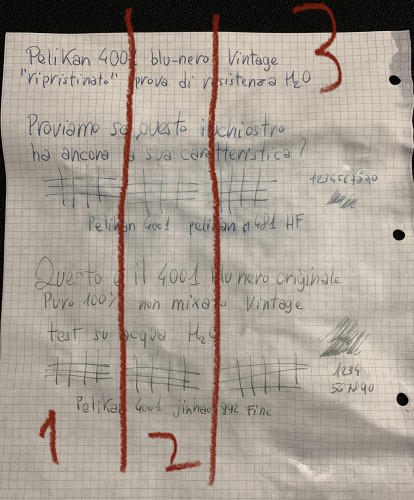 Pelikan 4001 blu-nero Vintage
"ripristinato" prova di resistenza H2O
3
Proviamo se questo inchiostro
ha ancora la sua caratteristica?
1234567890
Pelikan 4001 pelikan M481 HF
Questo è il 4001 blu nero originale
Puro 100% non mixato Vintage
test su acqua H2O
1234
567890
Pelikan 4001 jinhao 992 Fine
1
2